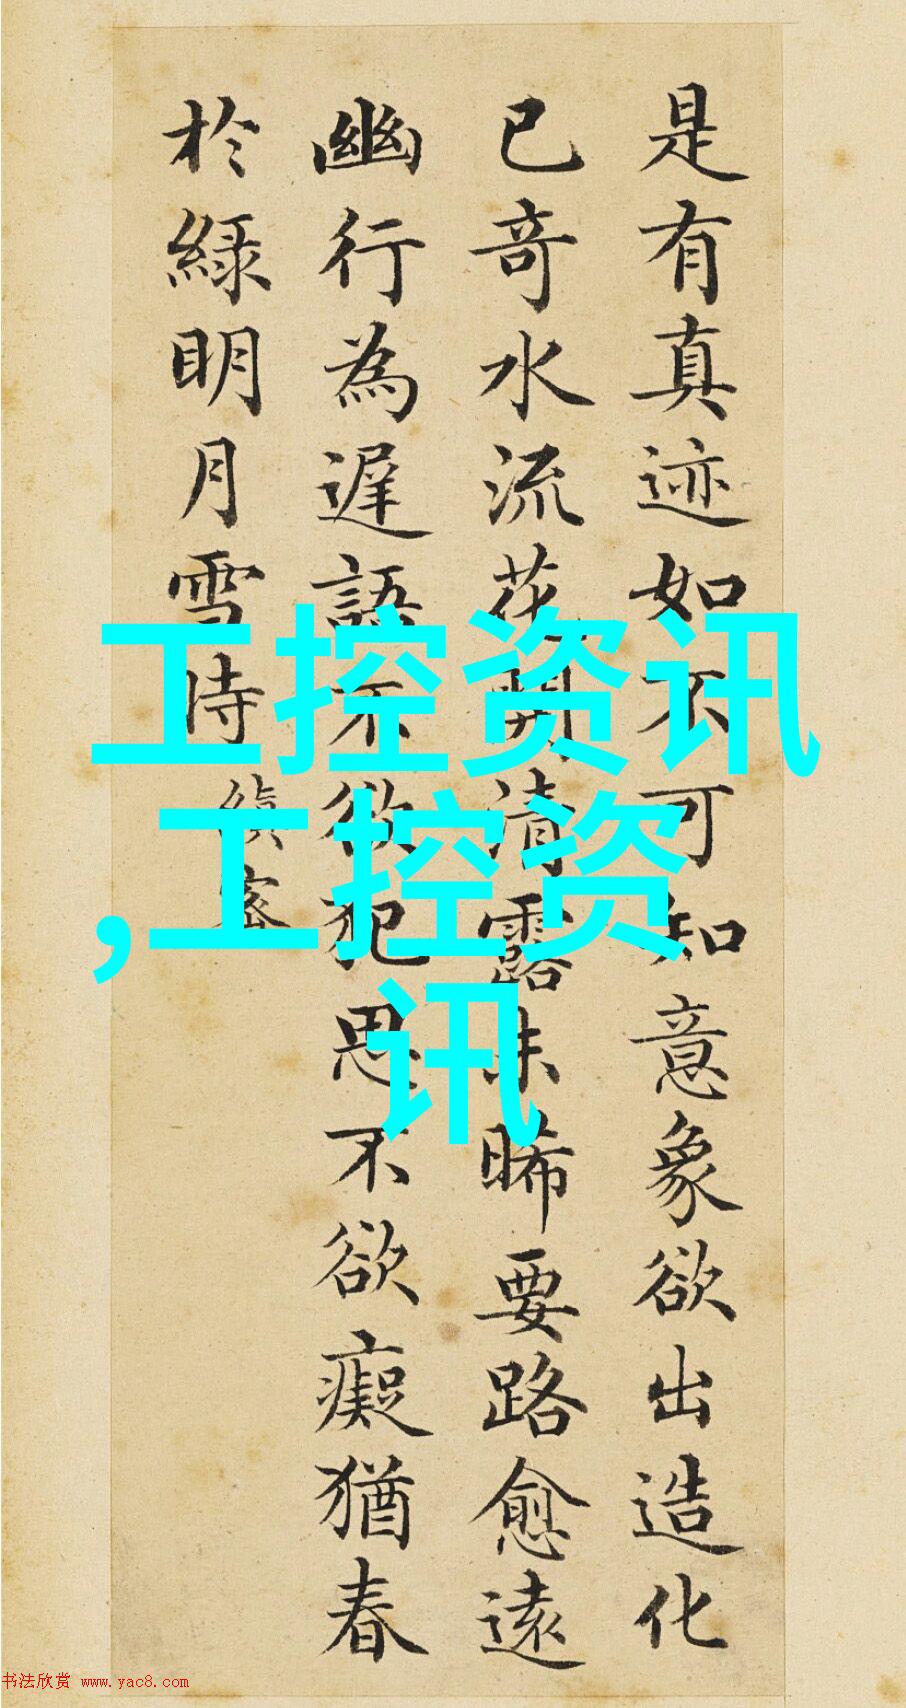 是有真迹如不可知意象欲出造化
已奇水流花開清露未晞要路愈遠
幽行為遲語不欲犯思不欲癡猶春
於綠明月雪時
縝密
工控资讯
,工控资
讯
书法欣赏 www.yac8.com